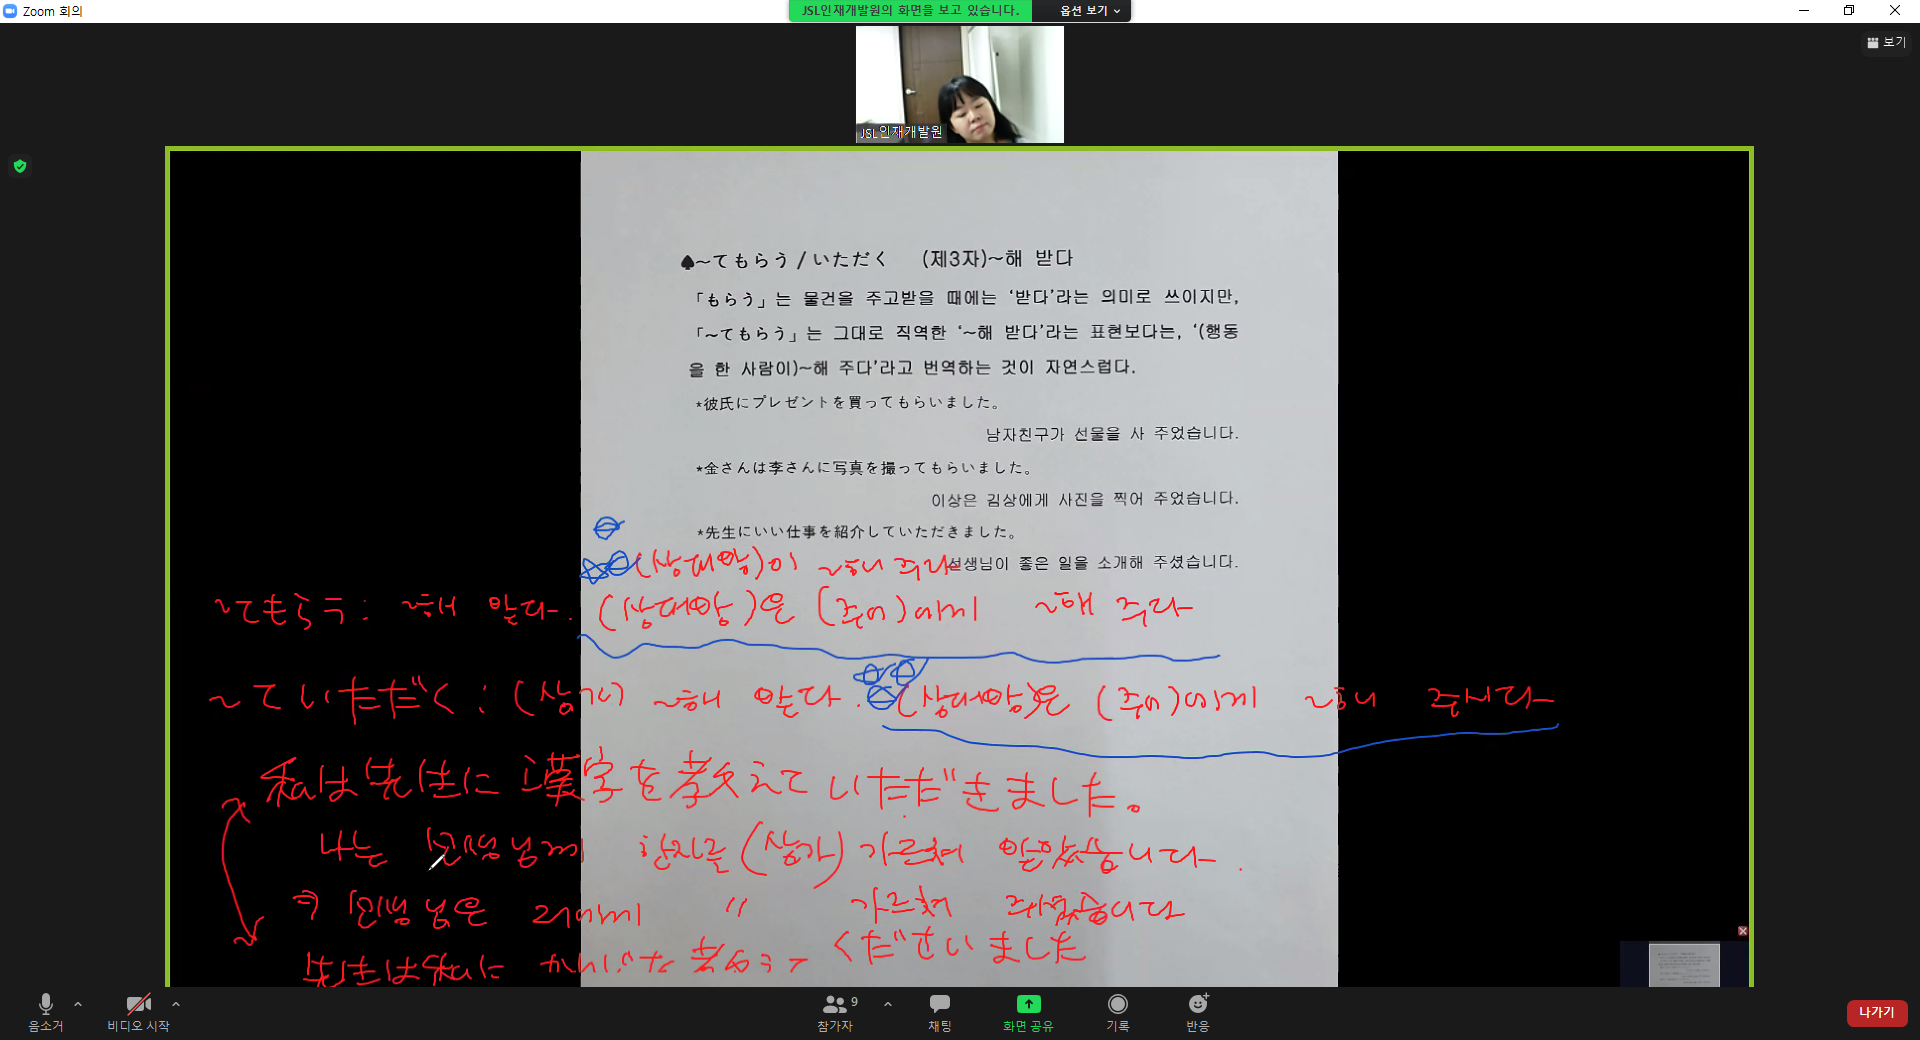 Zoom 회의
JSL인재개발원의 화면을 보고 있습니다.
옵션 보기
보기
JSL인재개발원
♠~てもらう / いただく (제3자)~해 받다
「もらう」는 물건을 주고받을 때에는 ‘받다’라는 의미로 쓰이지만,
「~てもらう」는 그대로 직역한 ‘~해 받다’라는 표현보다는, ‘(행동
을 한 사람이)~해 주다’라고 번역하는 것이 자연스럽다.
*彼氏にプレゼントを買ってもらいました。
남자친구가 선물을 사 주었습니다.
*金さんは李さんに写真を撮ってもらいました。
이상은 김상에게 사진을 찍어 주었습니다.
*先生にいい仕事を紹介していただきました。
선생님이 좋은 일을 소개해 주셨습니다.
(상대방)이 ~해 주다
~てもらう : ~해 받다. (상대방)은 (주어)에게 ~해 주다
~ていただく : (상가) ~해 받다. (상대방)은 (주어)에게 ~해 주시다
私は先生に漢字を教えていただきました。
나는 선생님께 한자를 (상가) 가르쳐 받았습니다.
⇒ 선생님은 나에게 〃 가르쳐 주셨습니다
先生は私に かんじを 教えて くださいました
음소거
비디오 시작
9
참가자
채팅
화면 공유
기록
반응
나가기